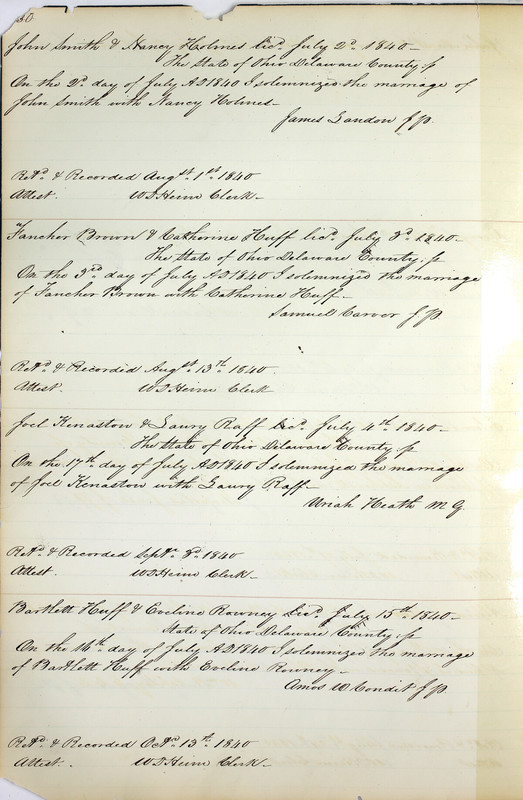 John Smith & Nancy Holmes Licd. July 2d. 1840-
The State of Ohio Delaware County. ss
On the 2d. day of July AD 1840 I solemnized the marriage of
John Smith with Nancy Holmes-
James Landon J P.
Retd. & Recorded Augst. 1st. 1840
Attest. W D Heim Clerk-
Fancher Brown & Catherine Huff Licd. July 3d. 1840-
The State of Ohio Delaware County. ss
On the 3rd day of July AD 1840 I solemnized the marriage
of Fancher Brown with Catherine Huff-
Samuel Carver J P
Retd. & Recorded Augst. 13th. 1840.
Attest. W D Heim Clerk
Joel Kenastow & Laury Raff Licd. July 4th. 1840-
The State of Ohio Delaware County ss
On the 17th day of July AD 1840 I solemnized the marriage
of Joel Kenastow with Laury Raff-
Uriah Heath M G.
Retd. & Recorded Septr. 3d. 1840
Attest. W D Heim Clerk-
Bartlett Huff & Eveline Rowney Licd. July 15th. 1840-
State of Ohio Delaware County ss
On the 16th day of July AD 1840 I solemnized the marriage
of Bartlett Huff with Eveline Rowney-
Amos W Condit J P
Retd. & Recorded Octr. 13th. 1840
Attest. W D Heim Clerk-